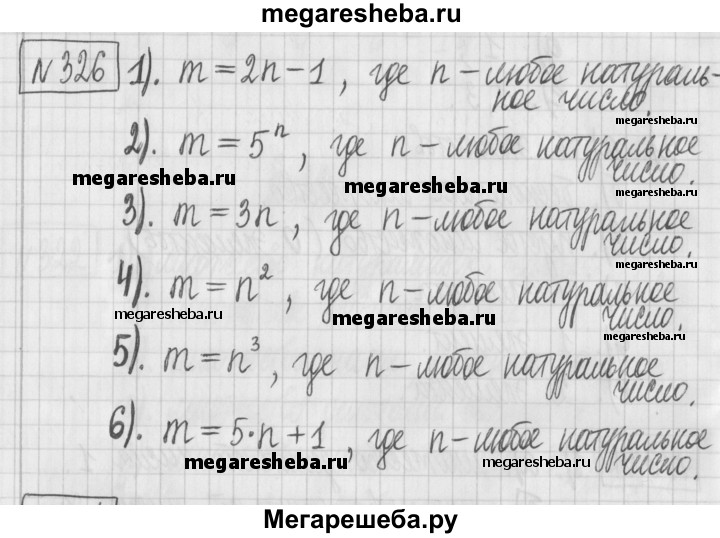 megaresheba.ru
№326 1). m = 2n - 1, где n - любое натураль-
ное число.
megaresheba.ru
2). m = 5ⁿ, где n - любое натуральное
число.
megaresheba.ru megaresheba.ru megaresheba.ru
3). m = 3n, где n - любое натуральное
число.
megaresheba.ru
4). m = n², где n - любое натуральное
число.
megaresheba.ru megaresheba.ru megaresheba.ru
5). m = n³, где n - любое натуральное
число.
megaresheba.ru
6). m = 5·n + 1, где n - любое натуральное
число.
megaresheba.ru megaresheba.ru megaresheba.ru
Мегарешеба.ру